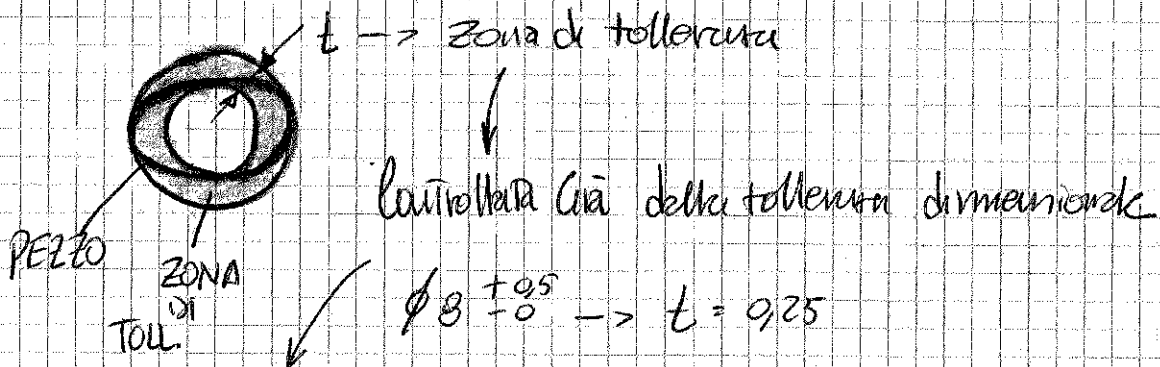 t -> Zona di tolleranza
Controllata già della tolleranza dimensionale
PEZZO
ZONA
DI
TOLL.
ø8 +0,5 -0 -> t = 0,25